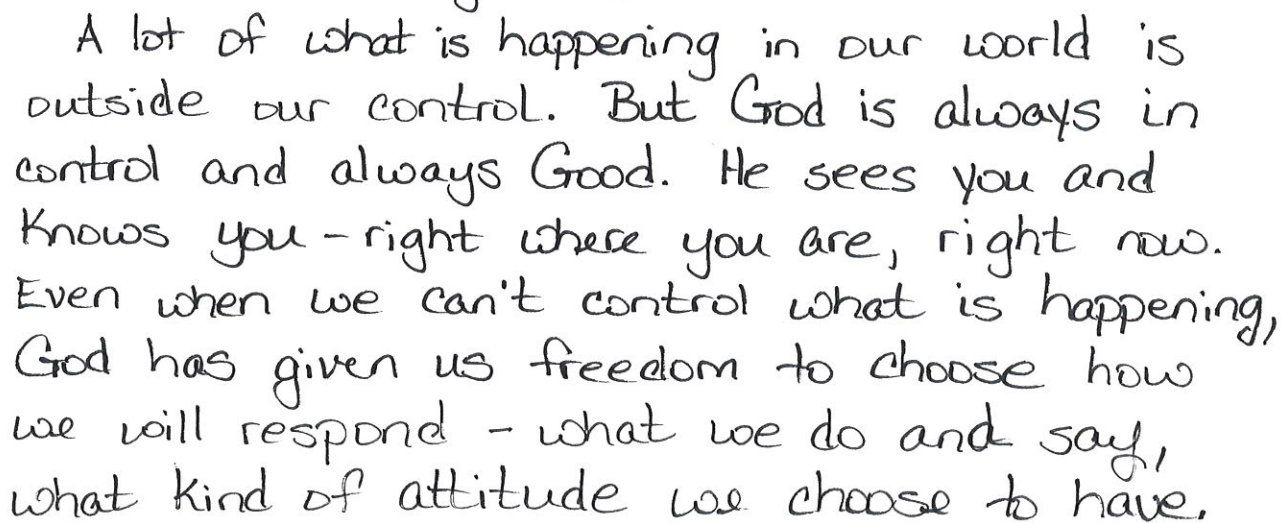 A lot of what is happening in our world is
outside our control. But God is always in
control and always Good. He sees you and
Knows you - right where you are, right now.
Even when we can't control what is happening,
God has given us freedom to choose how
we will respond - what we do and say,
what kind of attitude we choose to have.